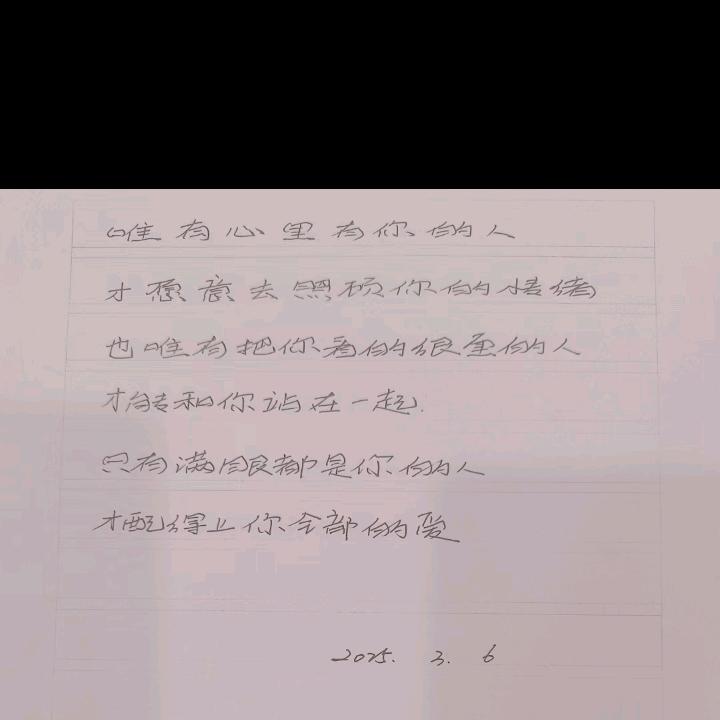 唯有心里有你的人
才愿意去照顾你的情绪
也唯有把你看的很重的人
才能和你站在一起.
只有满眼都是你的人
才配得上你全部的爱
2025. 3. 6